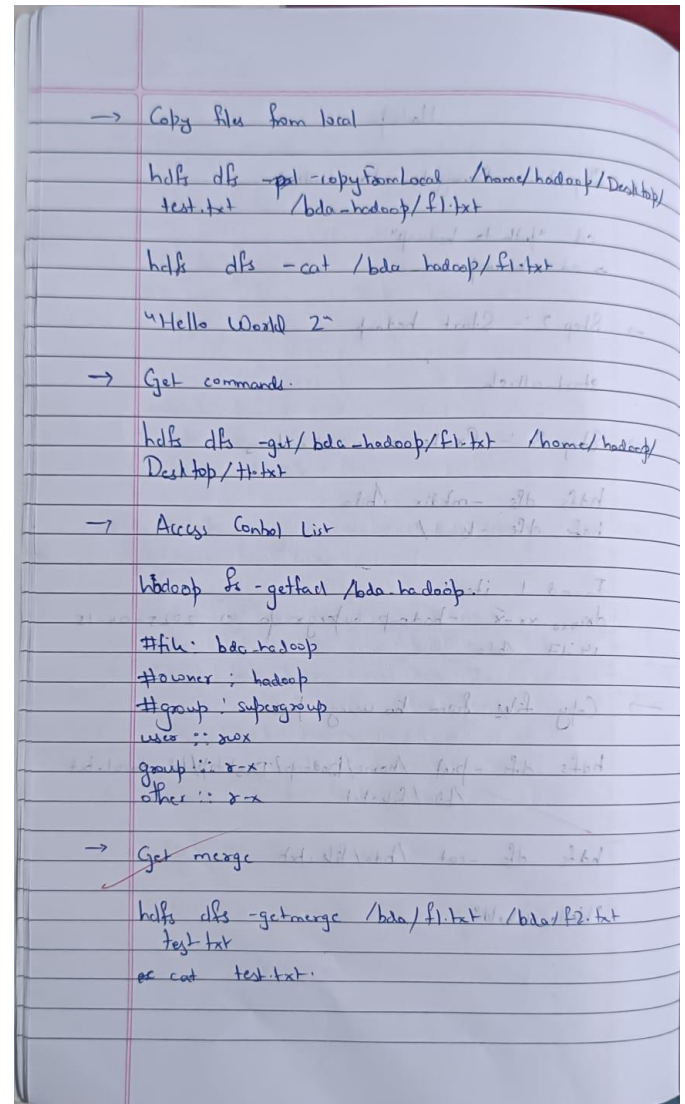 → Copy files from local :
hdfs dfs -copyFromLocal /home/hadoop/Desktop/
test.txt /bda-hadoop/f1.txt
hdfs dfs -cat /bda hadoop/f1.txt
"Hello World 2"
→ Get commands.
hdfs dfs -get/bda-hadoop/f1.txt /home/hadoop/
Desktop/f1.txt
→ Access Control List
hadoop fs -getfacl /bda-hadoop.
#file: bda-hadoop
#owner : hadoop
#group : supergroup
user :: rwx
group :: r-x
other :: r-x
→ Get merge
hdfs dfs -getmerge /bda/f1.txt /bda/f2.txt
test txt
cat test.txt.